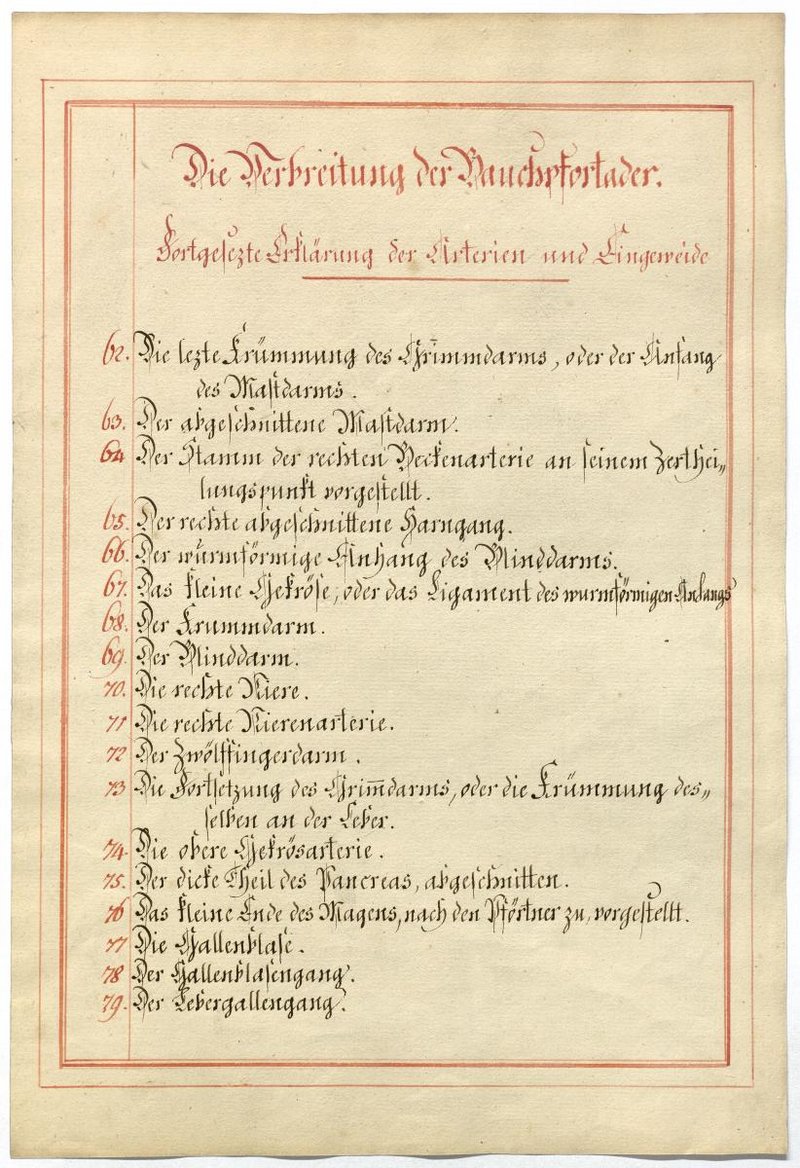 Die Verbreitung der Bauchpfortader.
Fortgesezte Erklärung der Arterien und Eingeweide
62. Die lezte Krümmung des Grim̅darms, oder der Anfang
des Mastdarms.
63. Der abgeschnittene Mastdarm.
64 Der Stamm der rechten Beckenarterie an seinem Zerthei„
lungspunkt vorgestellt.
65. Der rechte abgeschnittene Harngang.
66. Der wurmförmige Anhang des Blinddarms.
67. Das kleine Gekröse, oder das Ligament des wurmförmigen Anhangs
68. Der Krummdarm.
69. Der Blinddarm.
70. Die rechte Niere.
71 Die rechte Nierenarterie.
72 Der Zwölffingerdarm.
73 Die Fortsetzung des Grim̅darms, oder die Krümmung des„
selben an der Leber.
74. Die obere Gekrösarterie.
75. Der dicke Theil des Pancreas, abgeschnitten.
76 Das kleine Ende des Magens, nach den Pförtner zu, vorgestellt.
77 Die Gallenblase.
78 Der Gallenblasengang.
79. Der Lebergallengang.